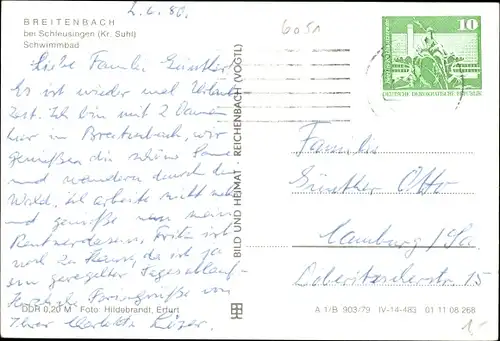 BREITENBACH
bei Schleusingen (Kr. Suhl)
Schwimmbad
2.6.80.
6051
10
DEUTSCHE DEMOKRATISCHE REPUBLIK
Liebe Familie Günther
Es ist wieder mal Urlaubs
zeit. Ich bin mit 2 Damen
hier in Breitenbach, wir
genießen die schöne
und wandern durch den
Wald, ich arbeite nicht mehr
und genieße nun mein
Rentnerdasein, Fritz ist
viel zu Hause, da ist ja
ein geregelter Tagesablauf.
Herzliche Feriengrüße von
Ihrer
BILD UND HEIMAT · REICHENBACH (VOGTL)
Familie
Günther Otto
/Sa.
15
DDR 0,20 M Foto: Hildebrandt, Erfurt
A 1/B 903/79 IV-14-483 01 11 08 268